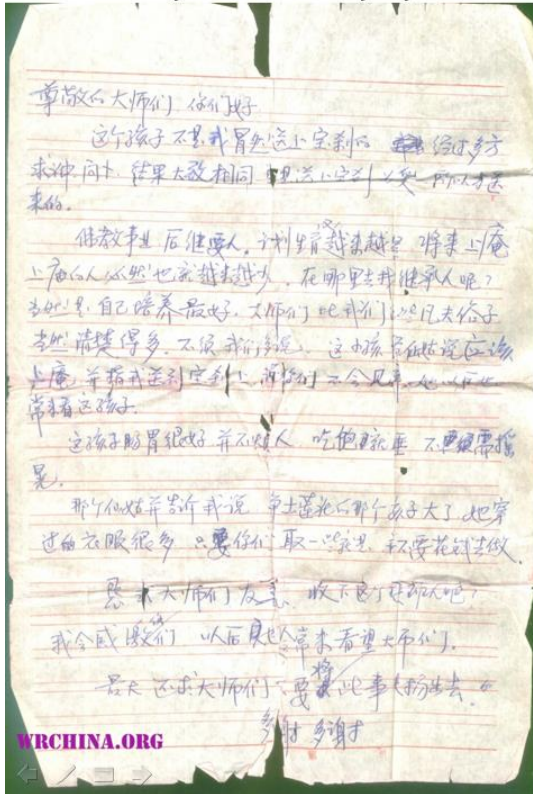 尊敬的大师们 你们好
这个孩子不是我冒然送上宝刹的 经过多方
求神问卜 结果大致相同 送上宝刹 所以才送
来的.
佛教事业后继要人. 计划生育越来越 将来上庵
上庙的人必然也就越来越少. 在哪里去找继承人呢?
当然是自己培养最好. 大师们比我们这些凡夫俗子
当然清楚得多. 不须我们多说. 这小孩 仙姑说应该
上庵 并指我送到宝刹上 你们不会见 以后
常来看这孩子.
这孩子肠胃很好 并不烦人 吃饱就睡 不需摇
晃.
那个仙姑并告诉我说 净土莲花的那个孩子大了 她穿
过的衣服很多 只要你们取一些就是 不要花钱去做.
恳求大师们 收下这个 吧?
我会感激你们 以后 也会常来看望大师们.
最大 还求大师们不要将此事 扬出去.
多谢 多谢
WRCHINA.ORG